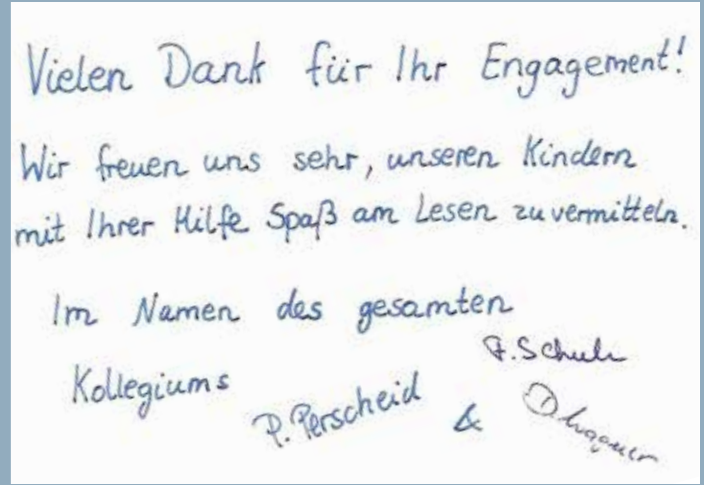 Vielen Dank für Ihr Engagement!
Wir freuen uns sehr, unseren Kindern
mit Ihrer Hilfe Spaß am Lesen zu vermitteln.
Im Namen des gesamten
Kollegiums
P. Perscheid &